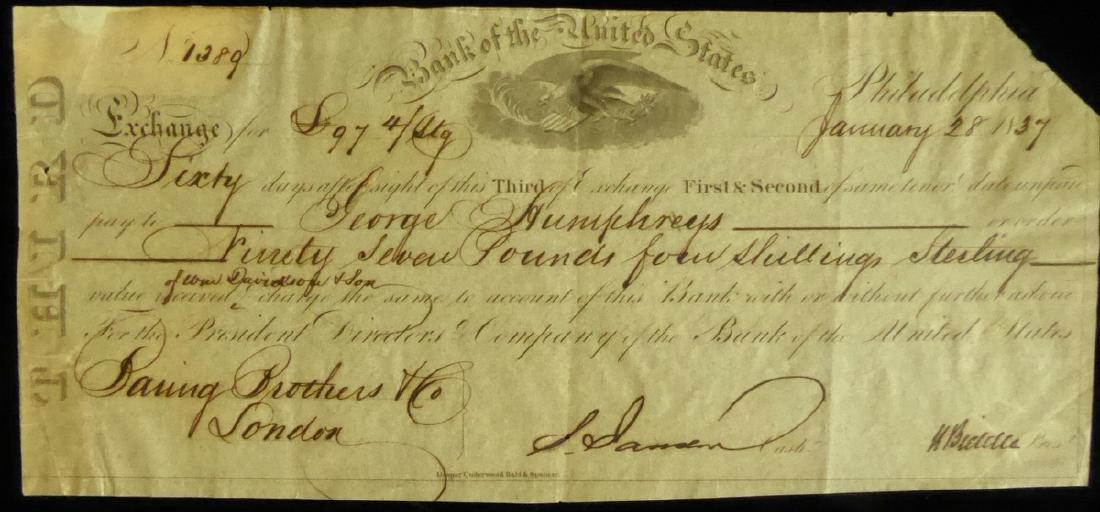 THIRD
N 1389
Bank of the United States
Philadelphia
Exchange for £97 4/ Stg
January 28 1837
Sixty days after sight of this Third of Exchange First & Second of same tenor & date unpaid
pay to George Humphreys or order
Ninety Seven Pounds four Shillings Sterling
of Wm Davidson & Son
value received & charge the same to account of this Bank with or without further advice
For the President Directors & Company of the Bank of the United States
Baring Brothers & Co
London
Cash.
N Biddle Pres.t
Draper Underwood Bald & Spencer